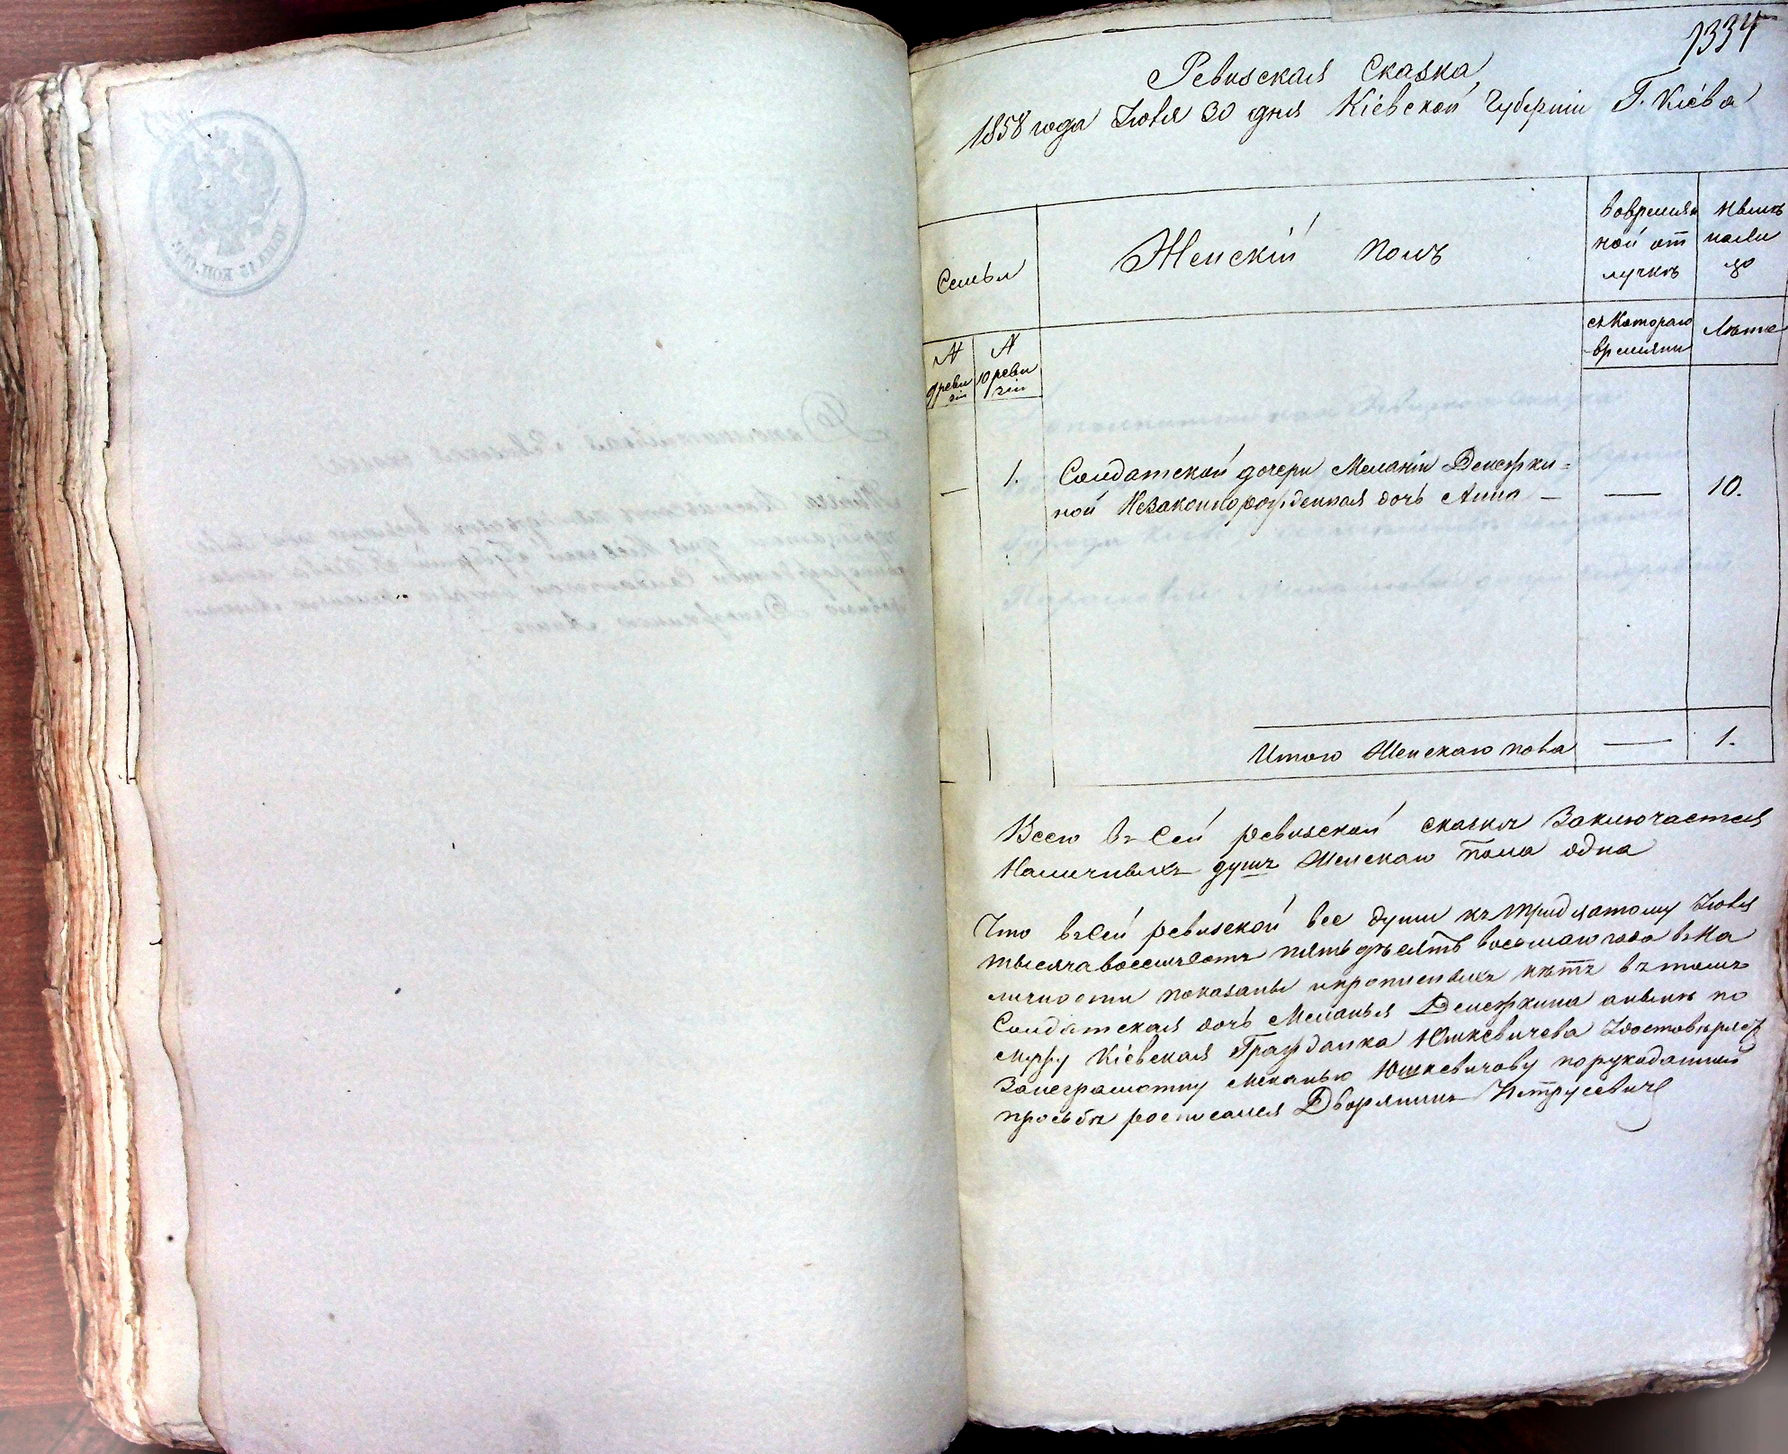 1334
Ревизская Сказка
1858 года Июля 30 дня Кіевской Губерніи Г. Кіева
Семьи
Женскій Полъ
Вовремян
ной от
лучкѣ
Нынѣ
нали
цо
№
9 реви
зіи
№
10 реви
зіи
съ Котораго
времяни
Лѣта
—
1.
Солдатской дочери Меланіи Денежки=
ной Незаконнорожденная дочь Анна —
—
10.
Итого Женскаго пола
—
1.
Всего въ Сей ревизской сказки Заключается
Наличныхъ душъ Женскаго Пола одна
Что въ Сей ревизской все души къ тридцатому Июля
тысяча восемьсотъ пятьдесятъ восьмаго года въ На
личности показаны и прописныхъ нѣтъ въ томъ
Солдатская дочь Меланья Денежкина а нынѣ по
мужу Кіевская Гражданка Юшкевичева
За неграмотну Меланью Юшкевичову порукоданный
просьбѣ росписался Дворянинъ